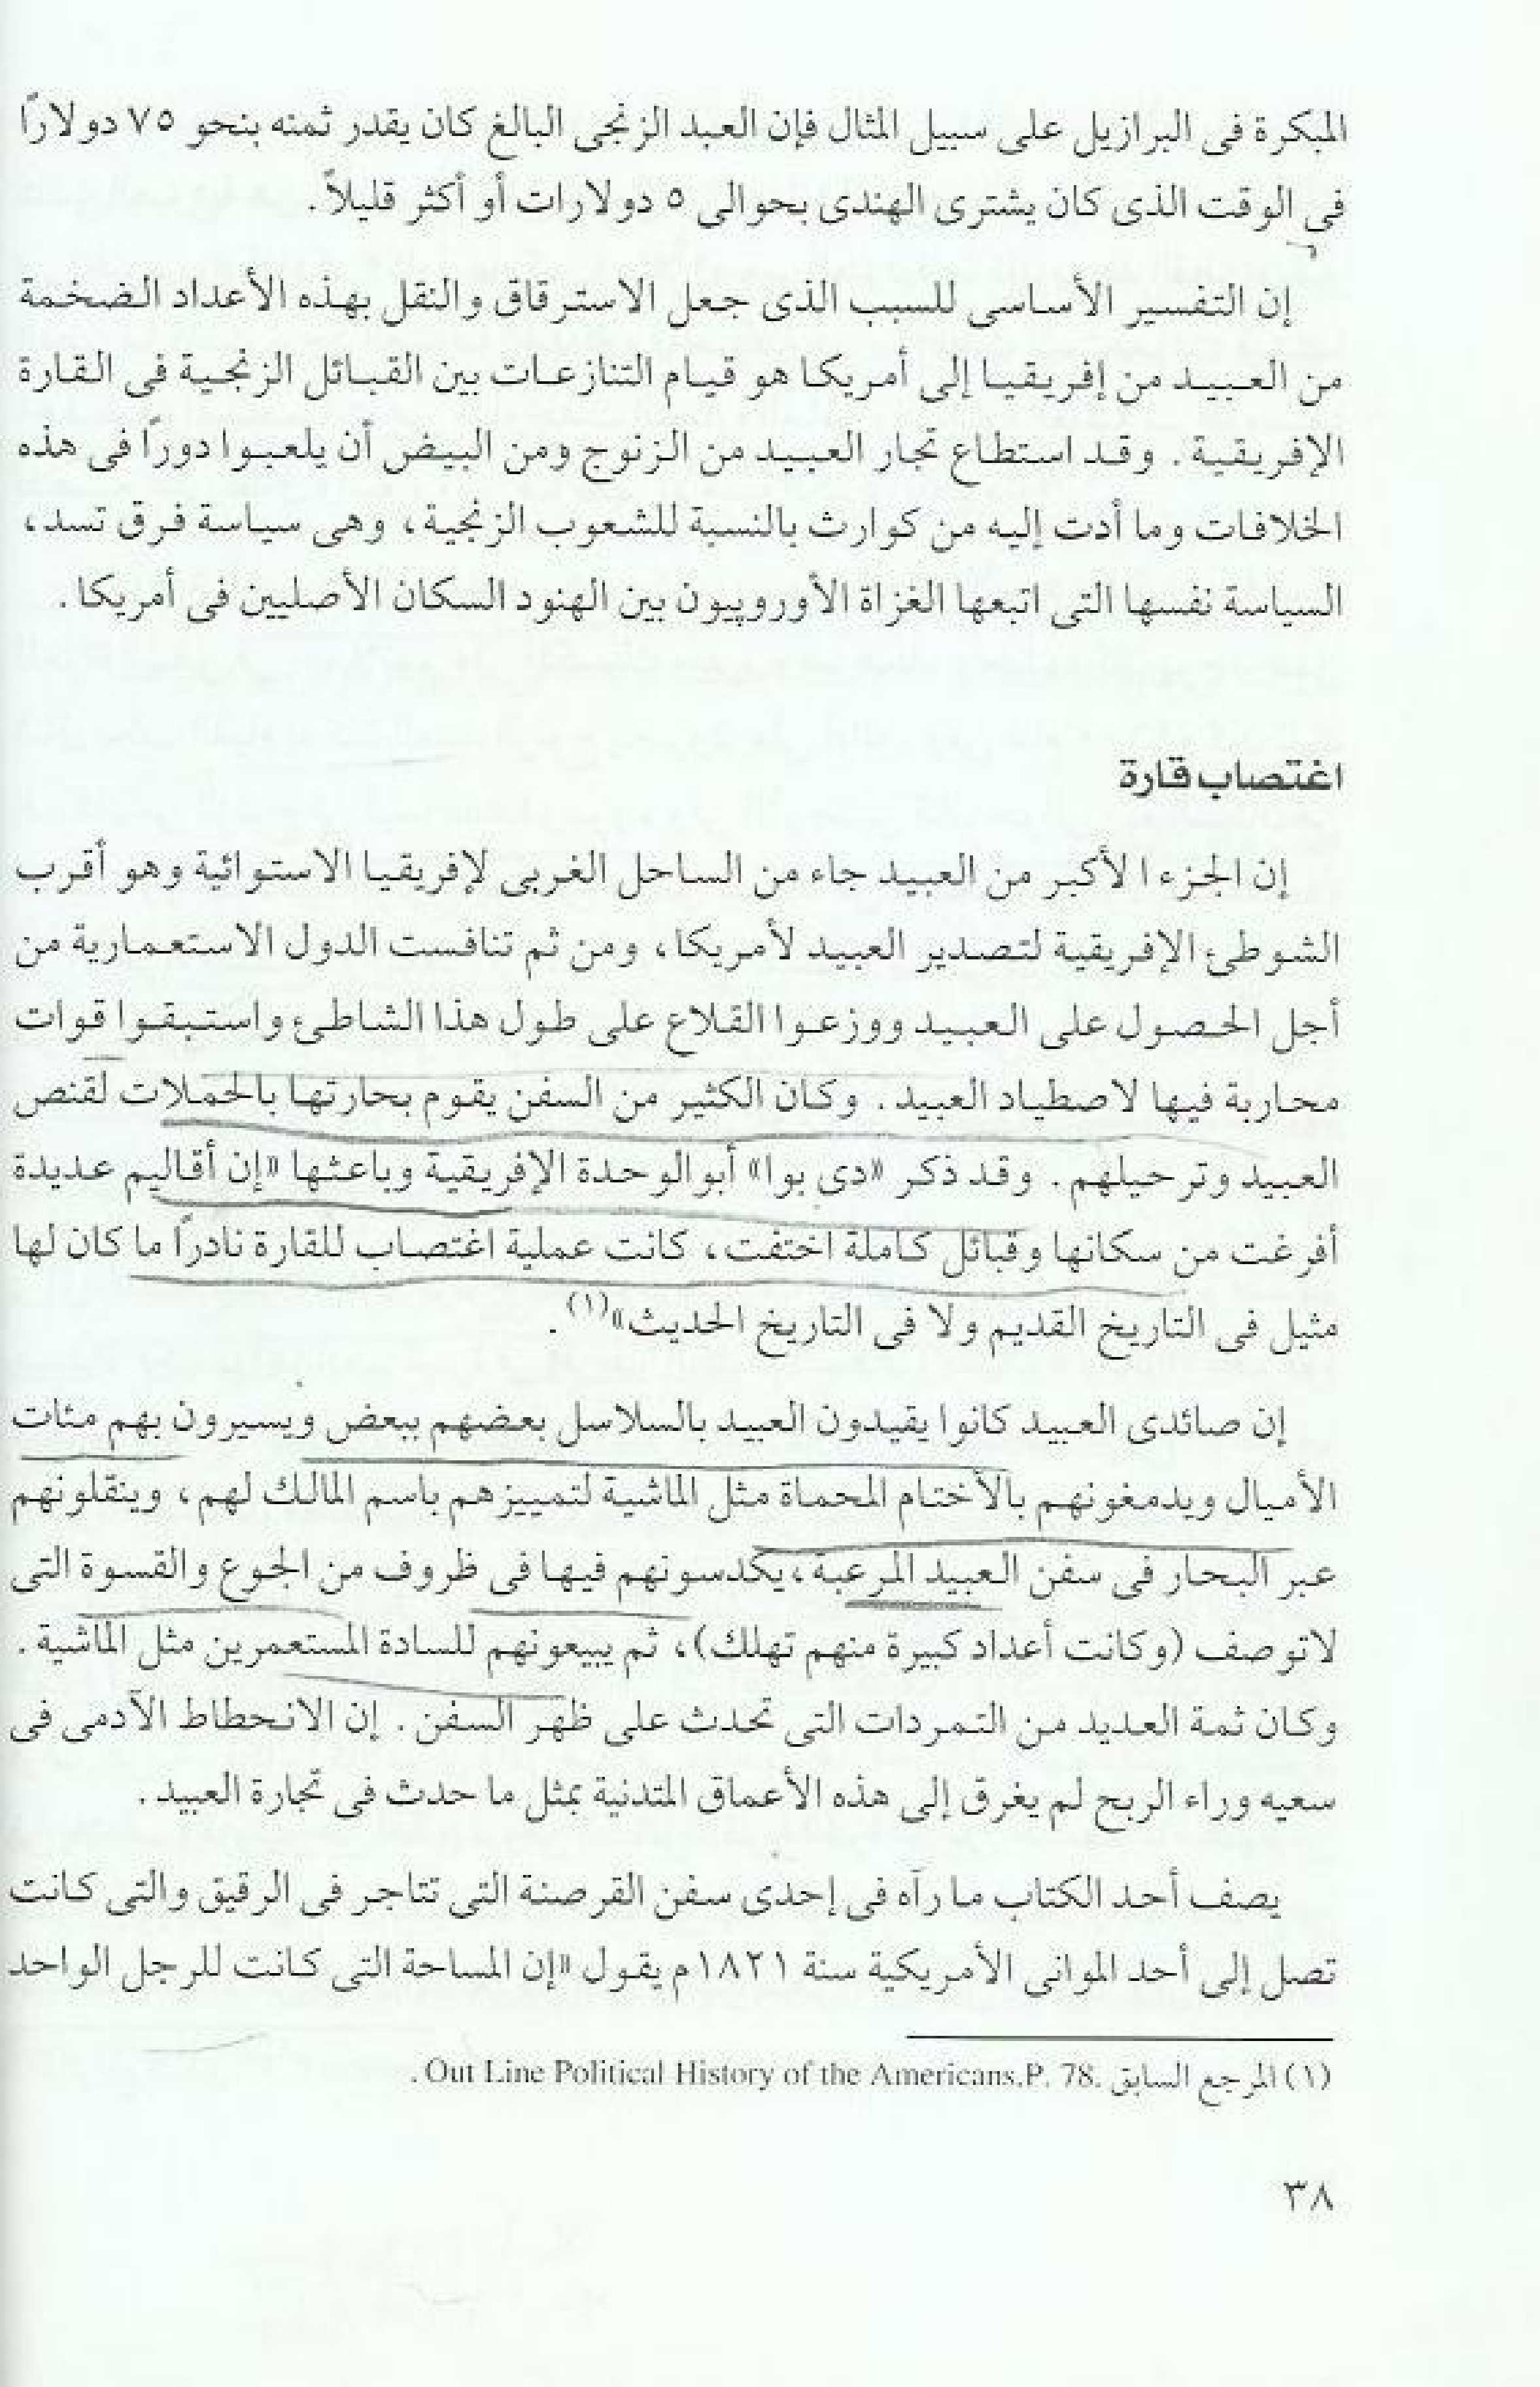 المبكرة فى البرازيل على سبيل المثال فإن العبد الزنجى البالغ كان يقدر ثمنه بنحو ٧٥ دولارًا
فى الوقت الذى كان يشترى الهندى بحوالى ٥ دولارات أو أكثر قليلاً.
إن التفسير الأساسى للسبب الذى جعل الاسترقاق والنقل بهذه الأعداد الضخمة
من العبيد من إفريقيا إلى أمريكا هو قيام التنازعات بين القبائل الزنجية فى القارة
الإفريقية. وقد استطاع تجار العبيد من الزنوج ومن البيض أن يلعبوا دورًا فى هذه
الخلافات وما أدت إليه من كوارث بالنسبة للشعوب الزنجية، وهى سياسة فرق تسد،
السياسة نفسها التى اتبعها الغزاة الأوروپيون بين الهنود السكان الأصليين فى أمريكا.
اغتصاب قارة
إن الجزء الأكبر من العبيد جاء من الساحل الغربى لإفريقيا الاستوائية وهو أقرب
الشوطئ الإفريقية لتصدير العبيد لأمريكا، ومن ثم تنافست الدول الاستعمارية من
أجل الحصول على العبيد ووزعوا القلاع على طول هذا الشاطئ واستبقوا قوات
محاربة فيها لاصطياد العبيد. وكان الكثير من السفن يقوم بحارتها بالحملات لقنص
العبيد وترحيلهم. وقد ذكر «دى بوا» أبو الوحدة الإفريقية وباعثها «إن أقاليم عديدة
أفرغت من سكانها وقبائل كاملة اختفت، كانت عملية اغتصاب للقارة نادرًا ما كان لها
مثيل فى التاريخ القديم ولا فى التاريخ الحديث»(١).
إن صائدى العبيد كانوا يقيدون العبيد بالسلاسل بعضهم ببعض ويسيرون بهم مئات
الأميال ويدمغونهم بالأختام المحماة مثل الماشية لتمييزهم باسم المالك لهم، وينقلونهم
عبر البحار فى سفن العبيد المرعبة، يكدسونهم فيها فى ظروف من الجوع والقسوة التى
لاتوصف (وكانت أعداد كبيرة منهم تهلك)، ثم يبيعونهم للسادة المستعمرين مثل الماشية.
وكان ثمة العديد من التمردات التى تحدث على ظهر السفن. إن الانحطاط الآدمى فى
سعيه وراء الربح لم يغرق إلى هذه الأعماق المتدنية بمثل ما حدث فى تجارة العبيد.
يصف أحد الكتاب ما رآه فى إحدى سفن القرصنة التى تتاجر فى الرقيق والتى كانت
تصل إلى أحد الموانى الأمريكية سنة ١٨٢١م يقول «إن المساحة التى كانت للرجل الواحد
(١) المرجع السابق .Out Line Political History of the Americans.P. 78.
٣٨